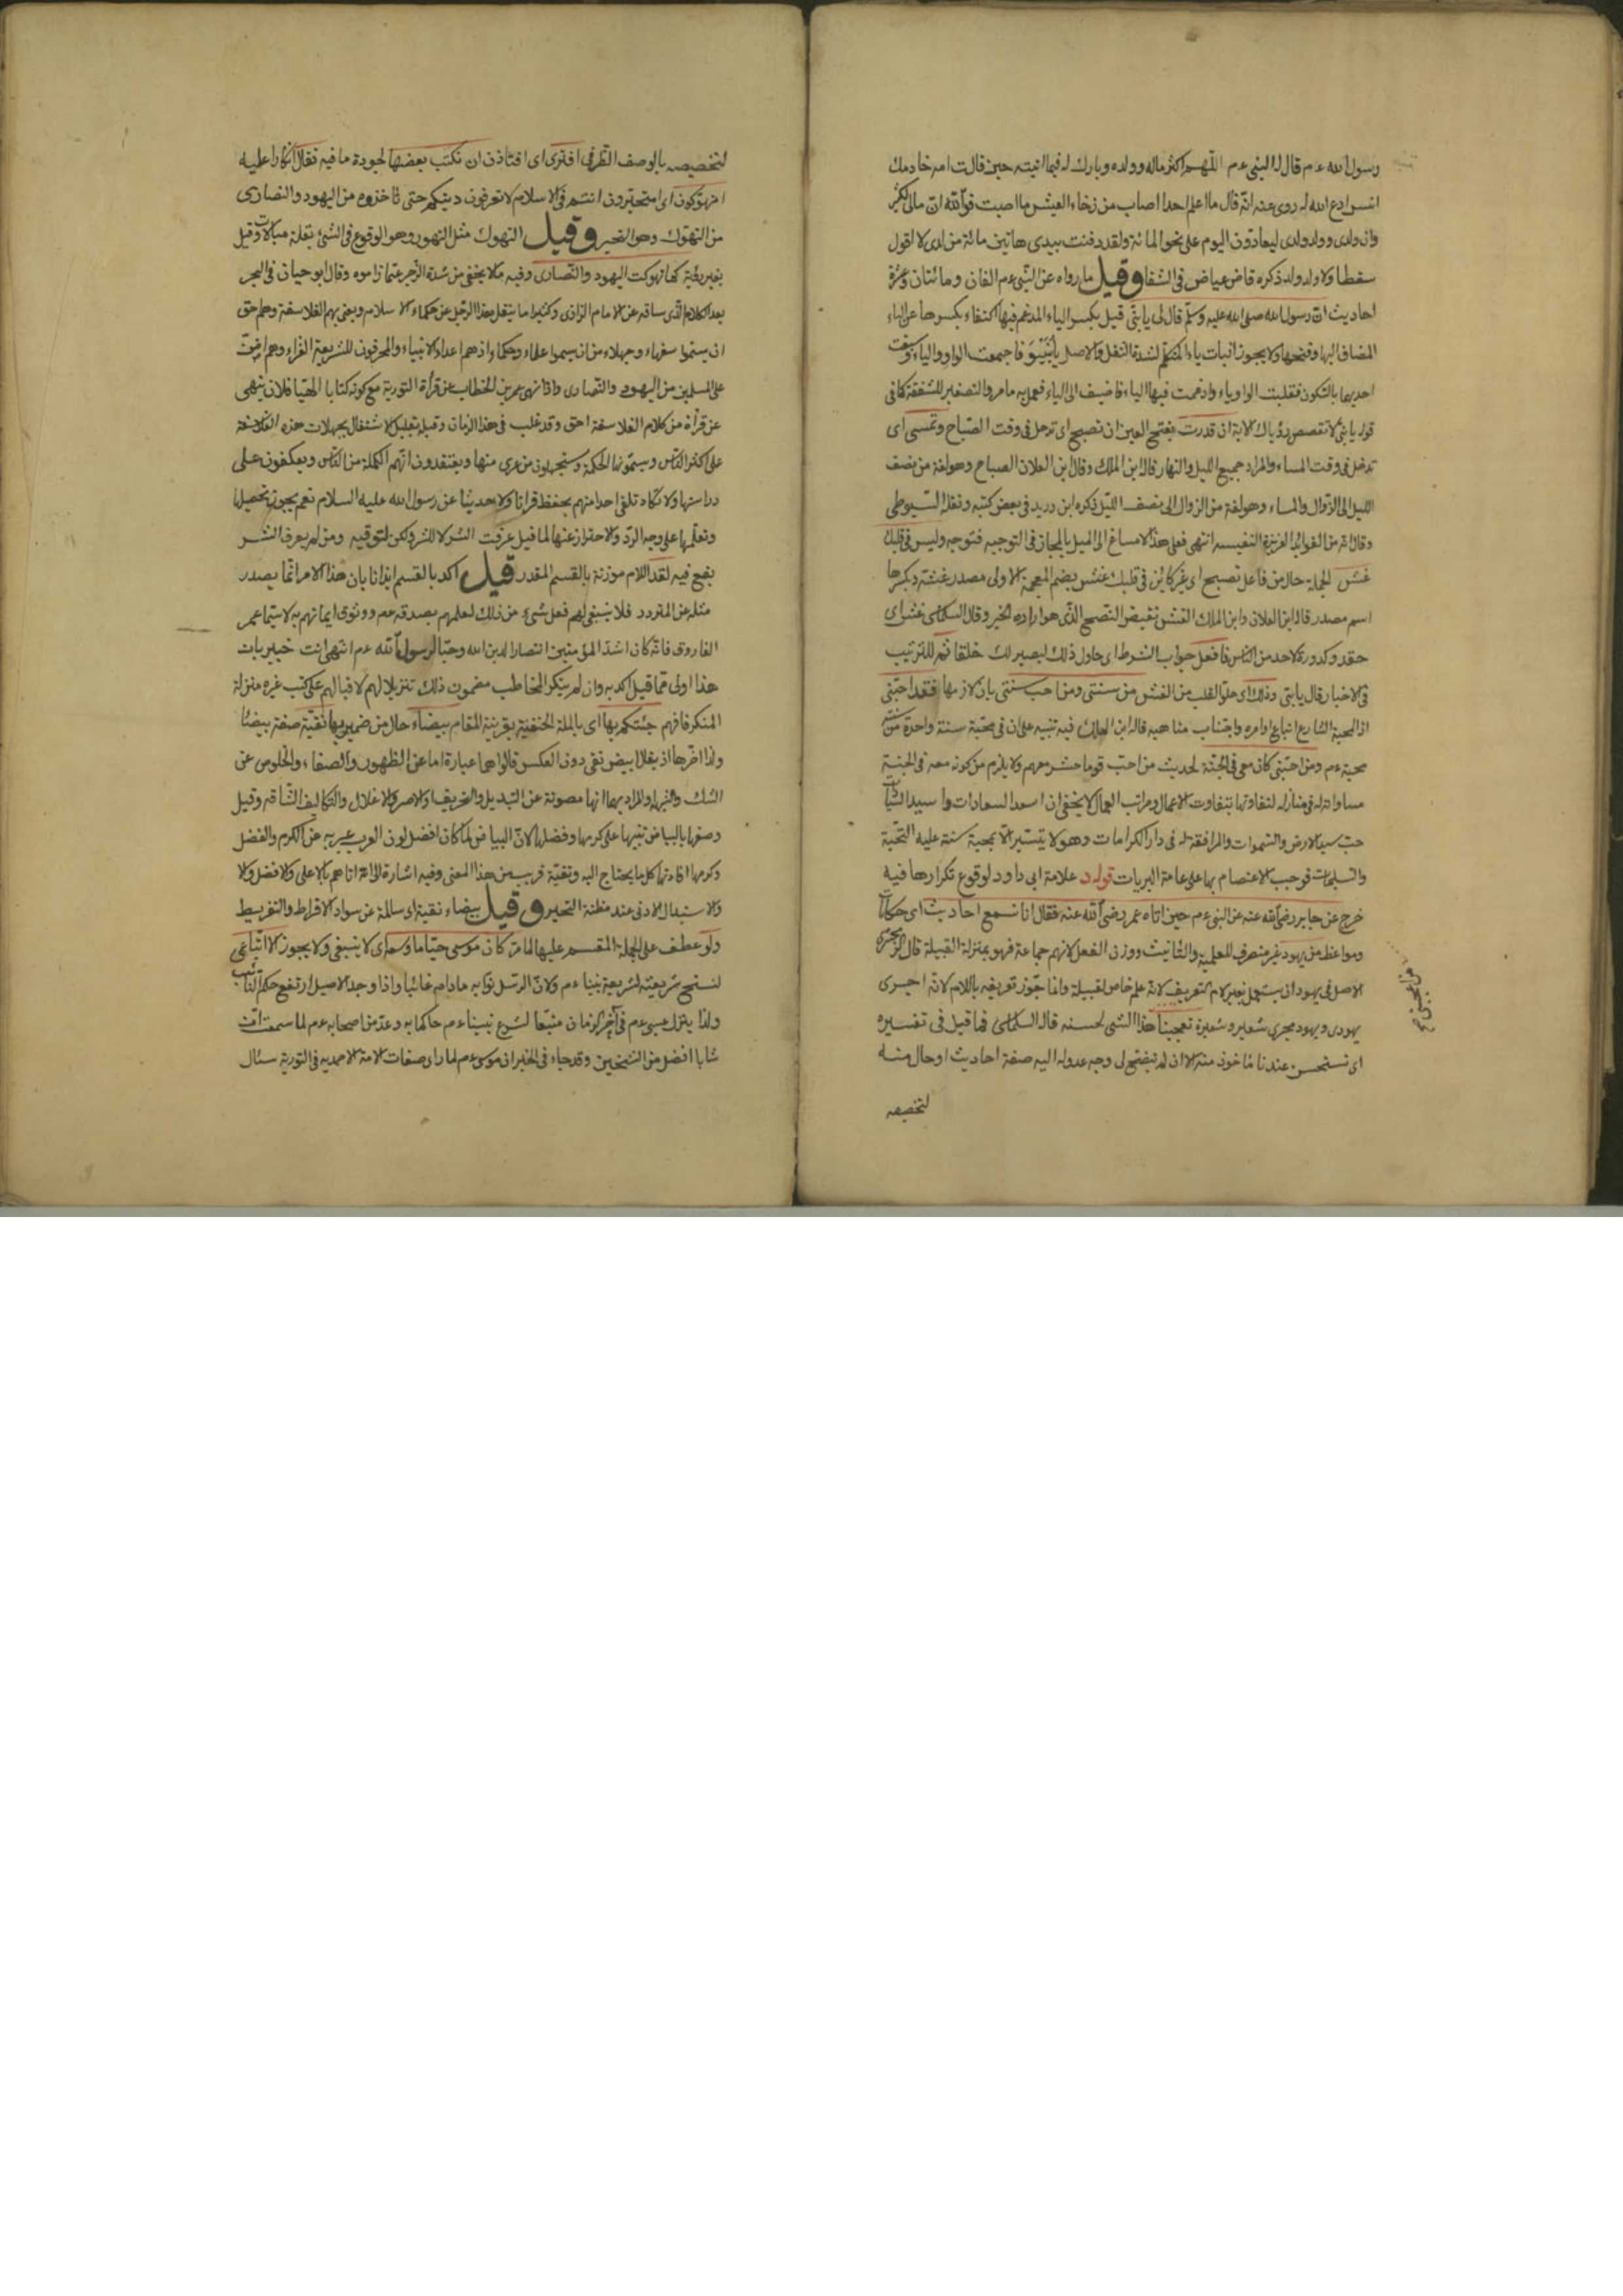 رسول الله عم قال له النبي عم اللهم اكثر ماله وولده وبارك له فيما اتيته حين قالت امه خادمك
انس ادع الله له روى عنه انه قال ما اعلم احدا اصاب من رخاء العيش ما اصبت فوالله ان مالي لكثير
وان ولدى وولد ولدى ليعادون اليوم على نحو المائة ولقد دفنت بيدى هاتين مائة من لدى لا اقول
سقطا ولا ولد ولد ذكره قاضى عياض في الشفا وقيل ما رواه عن النبي عم الفان ومائتان وعشرة
احاديث ان رسول الله صلى الله عليه وسلم قال لى يا بنى قيل بكسر الياء المدغم فيها اكتفاء بكسرها عن الياء
المضاف اليها وفتحها ولا يجوز اثبات ياء المتكلم لشدة الثقل والاصل يا بنيو فاجتمعت الواو والياء وسبقت
احديهما بالسكون فقلبت الواو ياء وادغمت فيها الياء فاضيف الى الياء فعمل به ما مر والتصغير للشفقة كما في
قوله يا بنى لا تقصص رؤياك الاية ان قدرت بفتح العين ان تصبح اى تدخل في وقت الصباح وتمسى اى
تدخل في وقت المساء والمراد جميع الليل والنهار قاله ابن الملك وقال ابن العلان الصباح وهو لغة من نصف
الليل الى الزوال والمساء وهو لغة من الزوال الى نصف الليل ذكره ابن دريد في بعض كتبه ونقله السيوطى
وقال انه من الفوائد العزيزة النفيسة انتهى فعلى هذا لا مساغ الى الميل بالمجاز في التوجيه فتوجه وليس في قلبك
غش الجملة حال من فاعل تصبح اى غير كائن في قلبك غش بضم المعجمة الاولى مصدر غشه وبكسرها
اسم مصدر قاله ابن العلان وابن الملك الغش نقيض النصح الذى هو ارادة الخير وقال السكاكى غش اى
حقد وكدورة لاحد من الناس فافعل جواب الشرط اى حاول ذلك ليصير لك خلقا ثم للترتيب
في الاخبار قال يا بنى وذلك اى خلو القلب من الغش من سنتى ومن احب سنتى بان لازمها فقد احبنى
اذ المحبة الشارع اتباع اوامره واجتناب مناهيه قاله ابن الملك فيه تنبيه على ان في محبة سنة واحدة من سننه
محبة عم ومن احبنى كان معى في الجنة لحديث من احب قوما حشر معهم ولا يلزم من كونه معه في الجنة
مساواته له في منازله لتفاوتها بتفاوت الاعمال ومراتب العمال لا يخفى ان اسعد السعادات واسيد السيادات
حب سيد الارض والسموات والمرافقة له في دار الكرامات وهو لا يتيسر الا بمحبة سنة عليه التحية
والتسليمات فوجب الاعتصام بها على عامة البريات قوله د علامة ابى داود لوقوع تكرارها فيه
خرج عن جابر رضى الله عنه عن النبي عم حين اتاه عمر رضى الله عنه فقال انا نسمع احاديث اى حكايات
ومواعظ من يهود غير منصرف للعلمية والتانيث ووزن الفعل لانهم جماعة فهو بمنزلة القبيلة قال الزمخشرى
الاصل في يهود ان يستعمل بغير لام التعريف لانه علم خاص لقبيلة وانما جوز تعريفه باللام لانه اجرى
يهودى ويهود مجرى شعير وشعيرة تعجبنا هذا الشى لحسنه قاله السكاكى فما قيل في تفسيره
اى تستحسن عندنا ماخوذ منه الا ان لم يتضح لى وجه عدوله اليه صفة احاديث او حال منه
لتخصيصه
لتخصيصه بالوصف الظرفى افترى اى افتاذن ان نكتب بعضها لجودة ما فيه فقال انكارا عليه
امتهوكون اى امتحيرون انتم في الاسلام لا تعرفون دينكم حتى تاخذوه من اليهود والنصارى
من التهوك وهو التحير وقيل التهوك مثل التهور وهو الوقوع في الشئ بقلة مبالات وقيل
بغير روية كما تهوكت اليهود والنصارى وفيه ما لا يخفى من شدة الزجر عما راموه وقال ابو حيان في البحر
بعد الكلام الذى ساقه عن الامام الرازى وكثيرا ما ينقل هذا الرجل عن حكماء الاسلام ويعنى بهم الفلاسفة وهم احق
ان يسموا سفهاء وجهلاء من ان يسموا علماء وحكماء اذ هم اعداء الانبياء والمحرفون للشريعة الغراء وهم اضر
على المسلمين من اليهود والنصارى واذا نهى عمر بن الخطاب عن قرأة التورية مع كونه كتابا الهيا فلان ينهى
عن قرأة من كلام الفلاسفة احق وقد غلب في هذا الزمان وقبله بقليل الاشتغال بجهلات هذه الفلاسفة
على اكثر الناس ويسمونها الحكمة ويستجهلون من عرى منها ويعتقدون انهم الكملة من الناس ويعكفون على
دراستها ولا تكاد تلقى احدا منهم يحفظ قرانا ولا حديثا عن رسول الله عليه السلام نعم يجوز تحصيلها
وتعلمها على وجه الرد والاحتراز عنها لما قيل عرفت الشر لا للشر ولكن لتوقيه ومن لم يعرف الشر
يقع فيه لقد اللام موزنة بالقسم المقدر قيل اكد بالقسم ايذانا بان هذا الامر انما يصدر
مثله عن المتردد فلا ينبغى لهم فعل شىء من ذلك لعلمهم بصدقه عم ووثوق ايمانهم به لا سيما عمر
الفاروق فانه كان اشد المؤمنين انتصارا لدين الله وحبا لرسول الله عم انتهى انت خبير بان
هذا اولى مما قيل اكد به وان لم ينكر المخاطب مضمون ذلك تنزيلا لهم لاقبالهم على كتب غيره منزلة
المنكر فافهم جئتكم بها اى بالملة الحنفية بقرينة المقام بيضاء حال من ضمير بها نقية صفة بيضاء
ولذا اخرها اذ يقال ابيض نقى دون العكس قالوا هما عبارة اما عن الظهور والصفاء والخلوص عن
الشك والشبهة او المراد بهما انها مصونة عن التبديل والتحريف او الاصر والاغلال والتكاليف الشاقة وقيل
وصفها بالبياض تنبيها على كرمها وفضلها لان البياض لما كان افضل لون العرب عبر به عن الكرم والفضل
وكرمها افادتها كل ما يحتاج اليه ونقية قريب من هذا المعنى وفيه اشارة الى انه اتاهم بالاعلى والافضل ولا
والاستبدال الادنى عند مظنة التحير وقيل بيضاء نقية اى سالمة عن سواد الافراط والتفريط
ولو عطف على الجملة المقسم عليها لما مر كان موسى حيا ما وسعه اى لا ينبغى ولا يجوز الا اتباعى
لنسخ شريعته لشريعة نبينا عم ولان الرسل نوابه مادام غائبا واذا وجد الاصيل ارتفع حكم النائب
ولذا ينزل عيسى عم في آخر الزمان متبعا لشرع نبينا عم حاكما به وعد من اصحابه عم لما سمعت ان
شابا افضل من الشيخين وقد جاء في الخبر ان موسى عم لما راى صفات الامة الاحمدية في التورية سئال